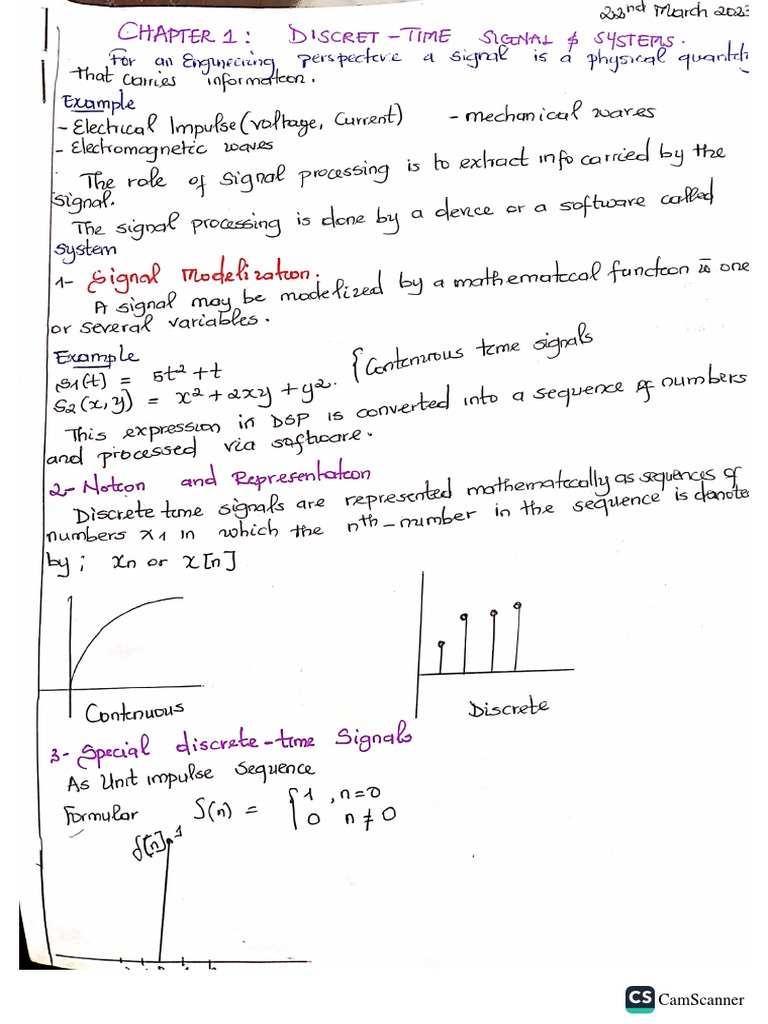 22nd March 2023
CHAPTER 1: DISCRET-TIME SIGNAL & SYSTEMS.
For an Engineering perspective a signal is a physical quantity
that carries information.
Example
- Electrical Impulse (voltage, Current) - mechanical waves
- Electromagnetic waves
The role of signal processing is to extract info carried by the
signal.
The signal processing is done by a device or a software called
system
1- Signal Modelization.
A signal may be modelized by a mathematical function is one
or several variables.
Example
S1(t) = 5t² + t
S2(x,y) = x² + 2xy + y2. { Continuous time signals
This expression in DSP is converted into a sequence of numbers
and processed via software.
2- Notion and Representation
Discrete time signals are represented mathematically as sequences of
numbers x1 in which the nth-number in the sequence is denote
by; xn or x[n]
Continuous
Discrete
3- Special discrete-time Signals
As Unit impulse Sequence
Formular S(n) = { 1 , n=0
0 n ≠ 0
δ[n] 1
CS CamScanner